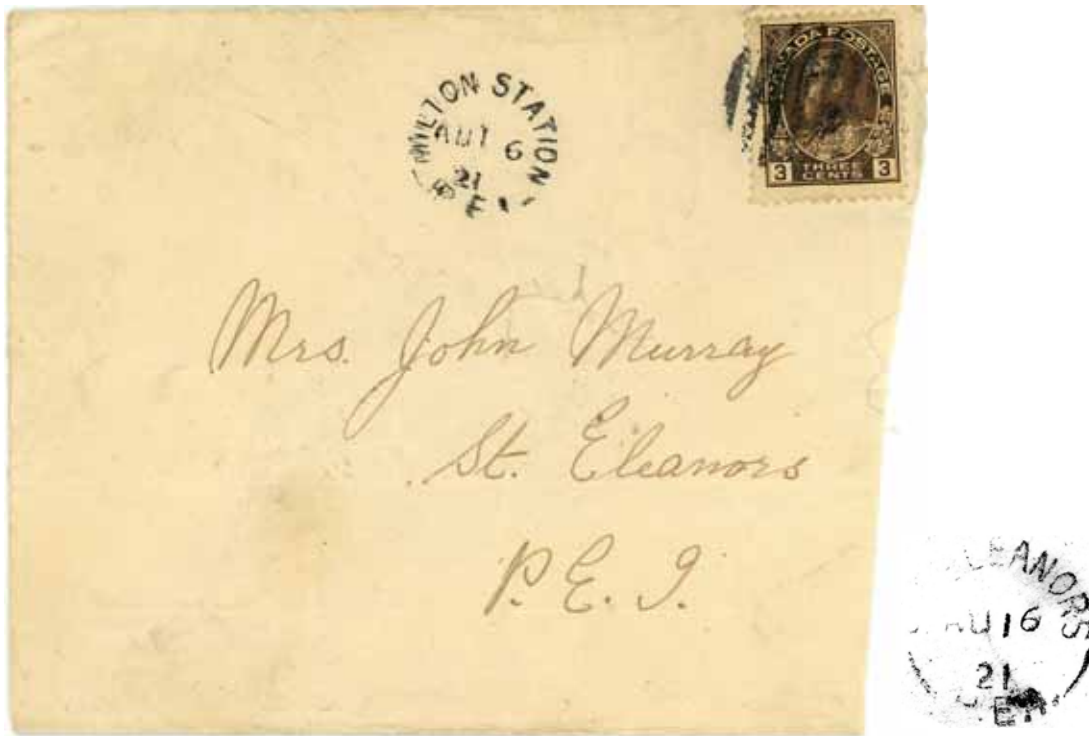 MILTON STATION
AU 16
21
P E I
CANADA POSTAGE
3 THREE CENTS 3
Mrs. John Murray
St. Eleanors
P. E. I.
ELEANORS
AU 16
21